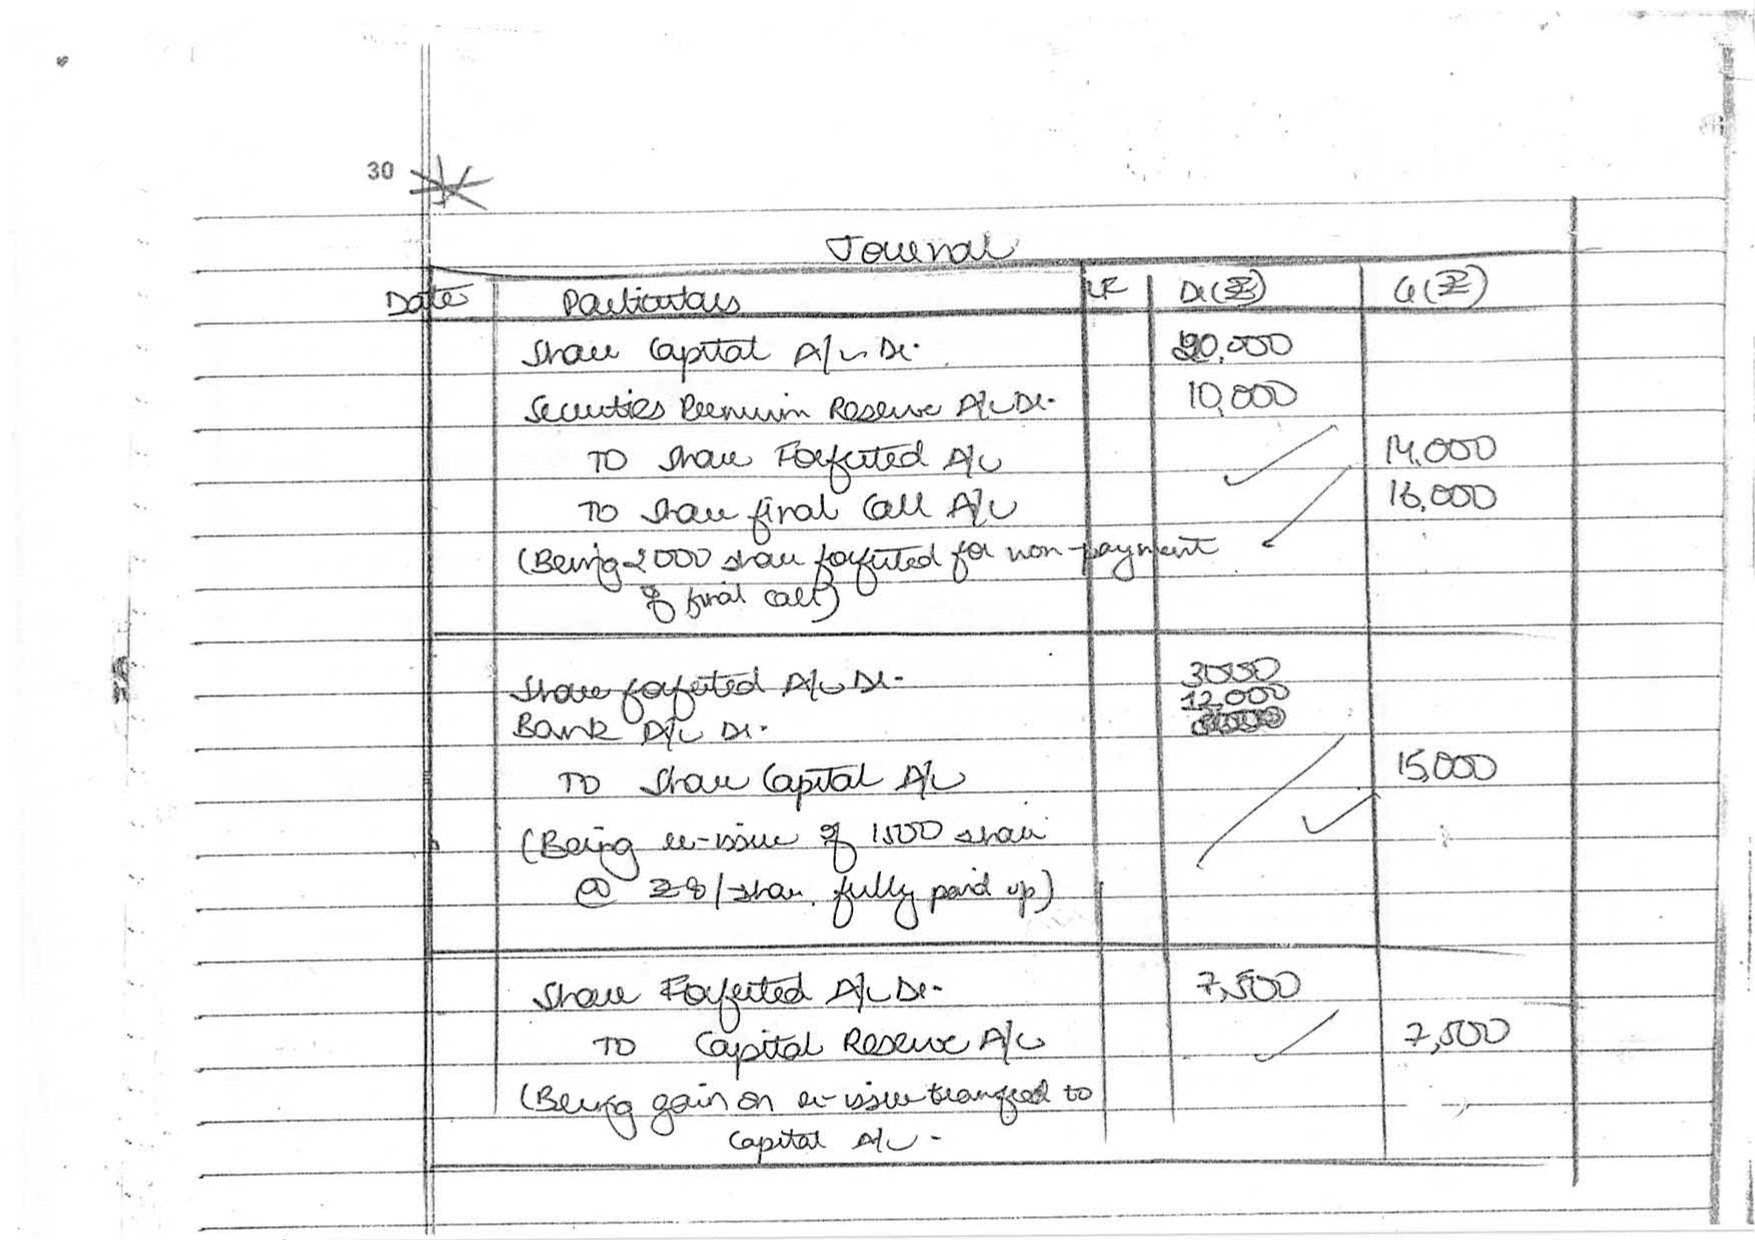 30
Journal
Date Particulars LF Dr (₹) Cr (₹)
Share Capital A/c Dr. 20,000
Securities Premium Reserve A/c Dr. 10,000
To Share Forfeited A/c 14,000
To Share final Call A/c 16,000
(Being 2000 share forfeited for non-payment
of final call)
Share forfeited A/c Dr. 3000
Bank A/c Dr. 12,000
To Share Capital A/c 15,000
(Being re-issue of 1500 share
@ ₹8/share, fully paid up)
Share Forfeited A/c Dr. 7,500
To Capital Reserve A/c 7,500
(Being gain on re-issue transfred to
Capital A/c.